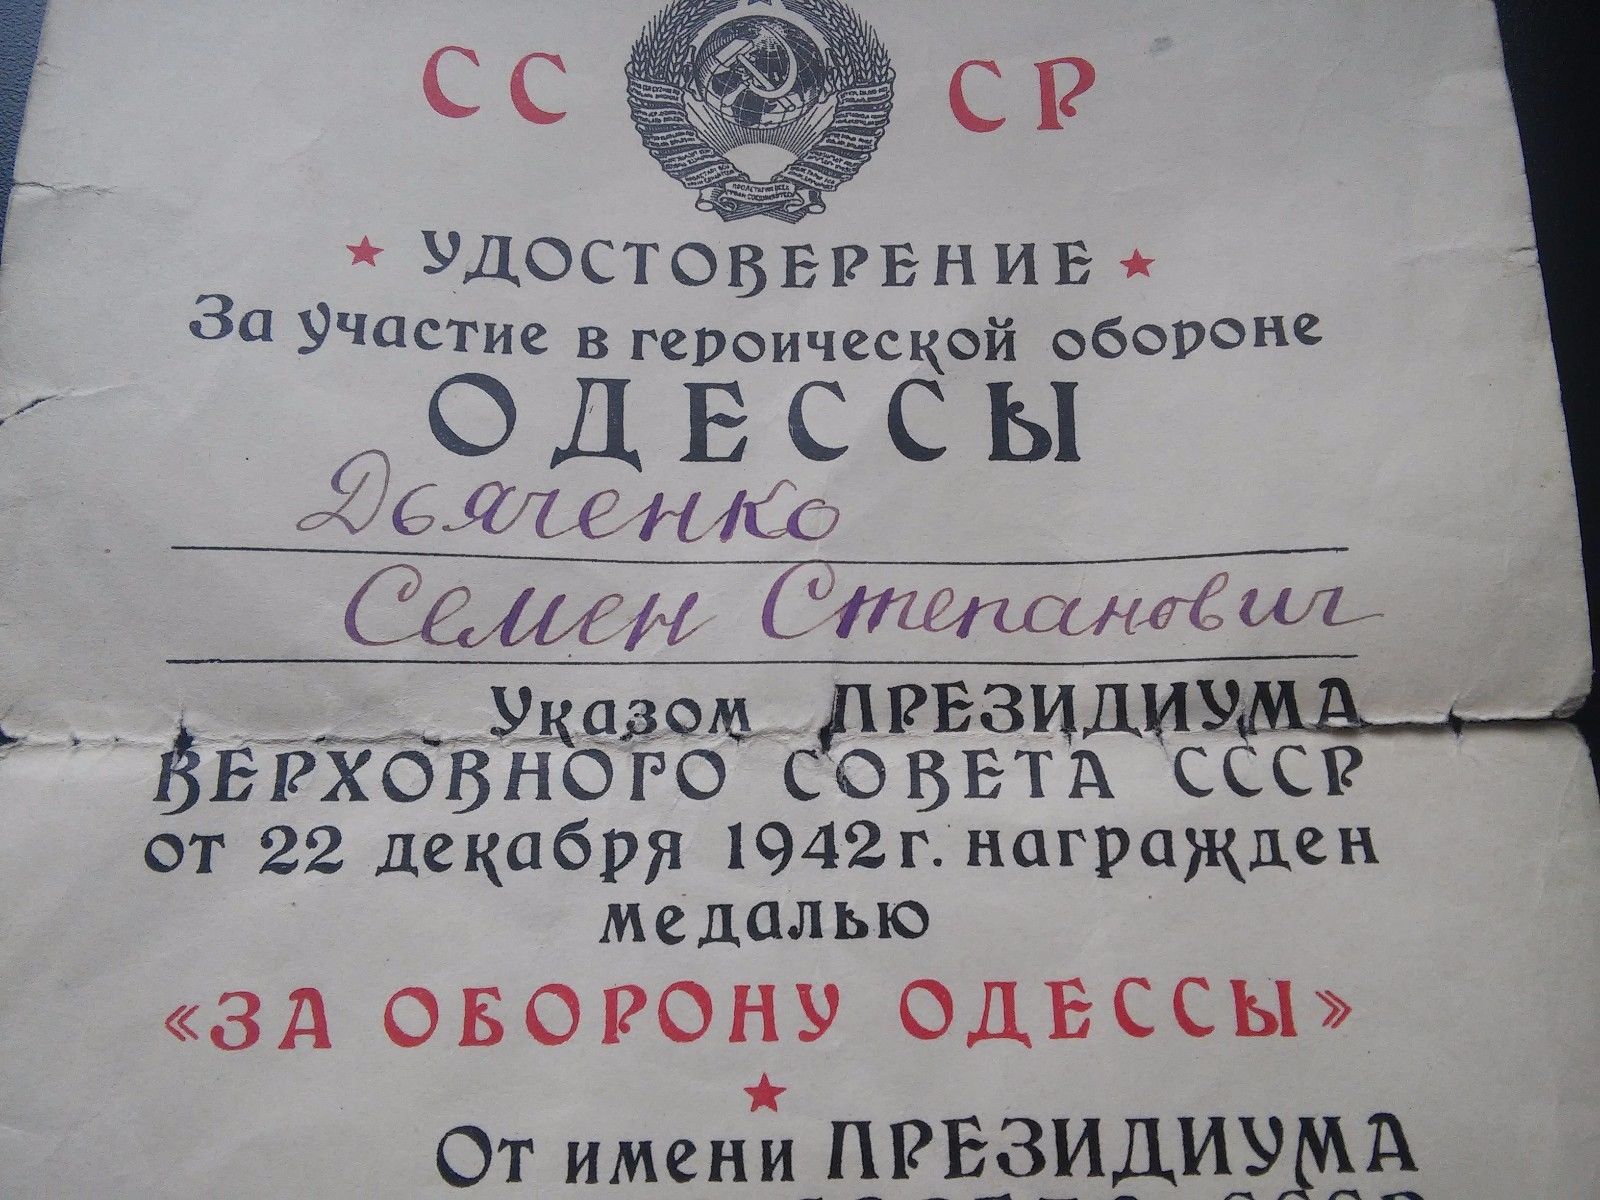 СС СР
УДОСТОВЕРЕНИЕ
За участие в героической обороне
ОДЕССЫ
Дьяченко
Семен Степанович
Указом ПРЕЗИДИУМА
ВЕРХОВНОГО СОВЕТА СССР
от 22 декабря 1942 г. награжден
медалью
«ЗА ОБОРОНУ ОДЕССЫ»
От имени ПРЕЗИДИУМА